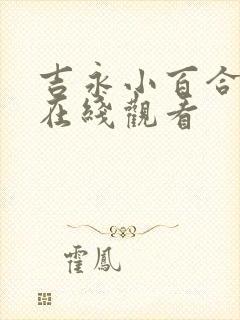 吉永小百合
在綫觀看
霍鳳